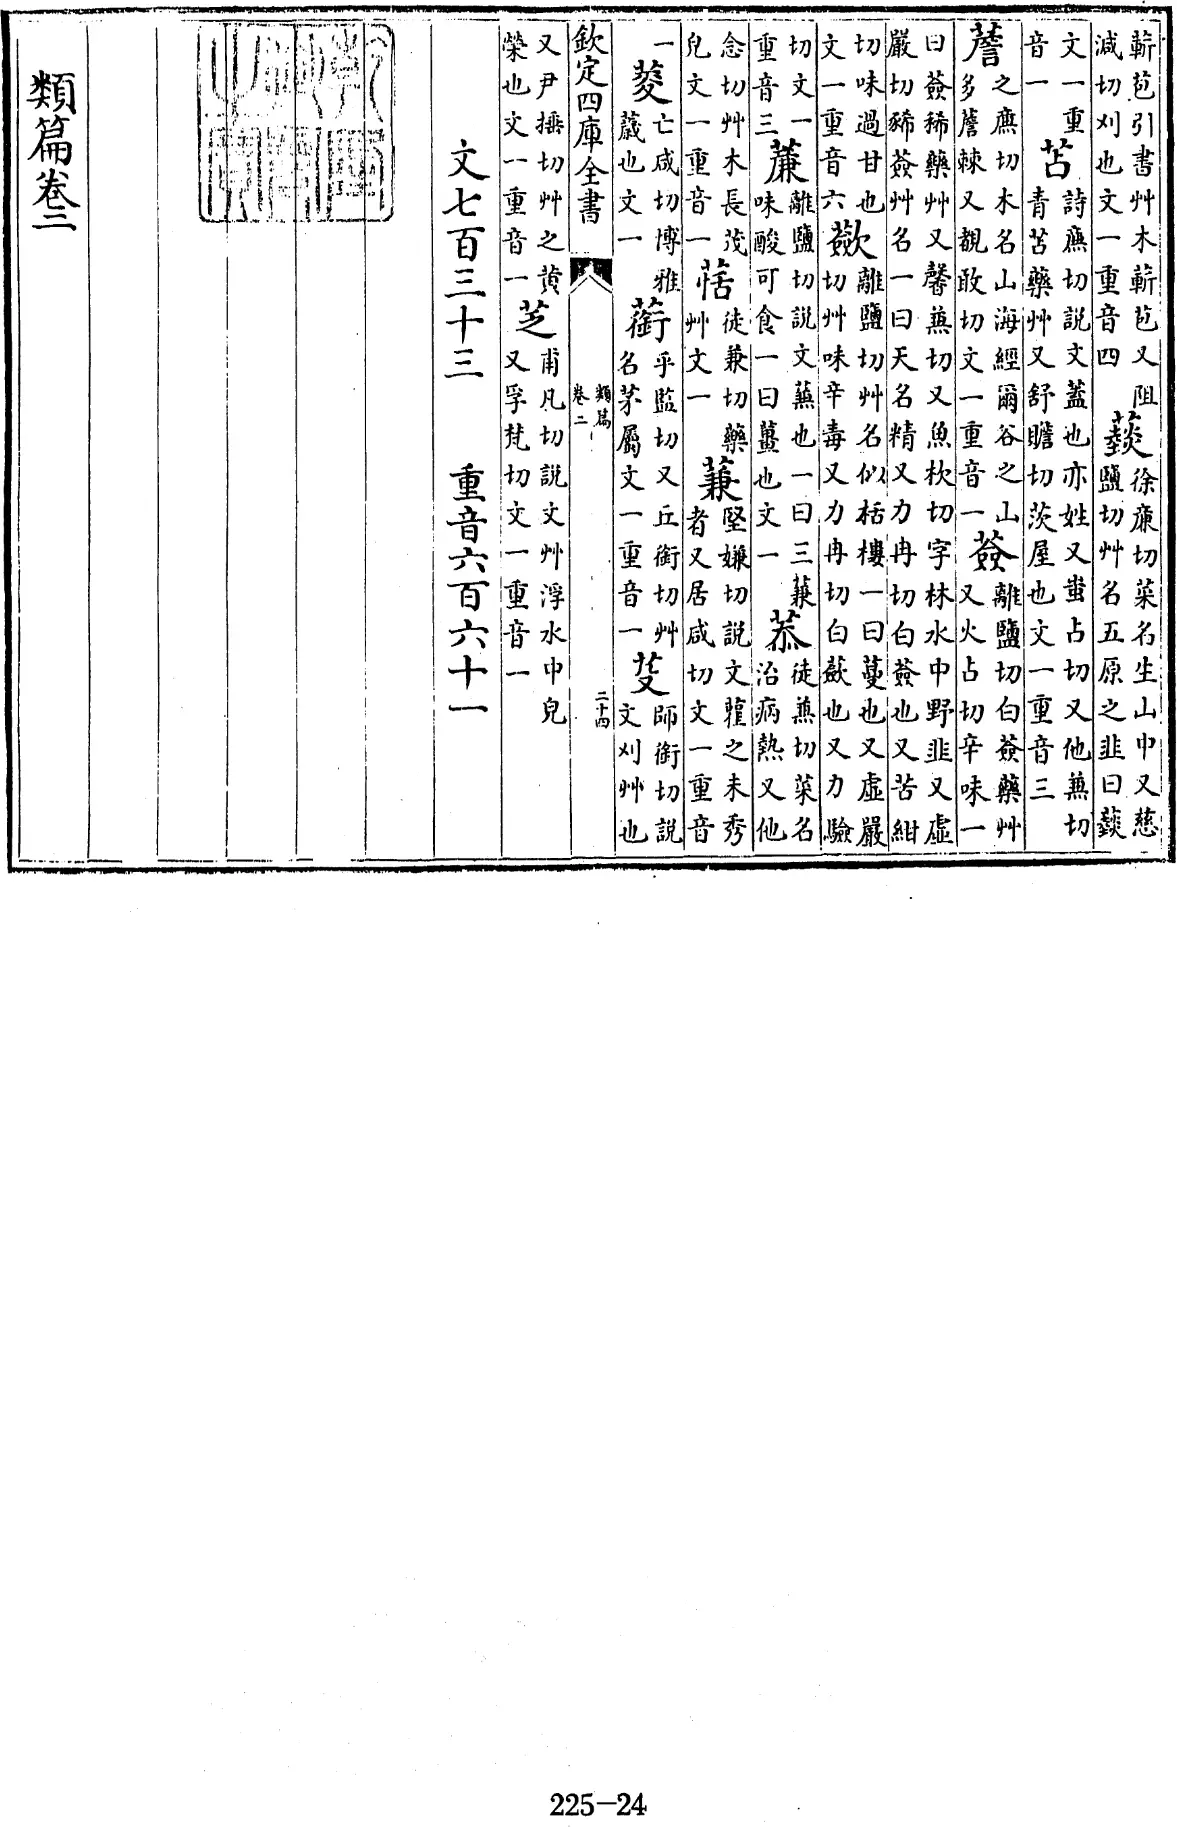 蔪苞引書艸木蔪苞又阻減切刈也文一重音四 徐廉切菜名生山中又慈鹽切艸名五原之韭曰
文一重音一 苫 詩廉切說文蓋也亦姓又蚩占切又他蒹切青苫藥艸又舒贍切茨屋也文一重音三
薝 之廉切木名山海經爾谷之山多薝棘又覩敢切文一重音一 薟 離鹽切白薟藥艸又火占切辛味一
曰薟豨藥艸又馨蒹切又魚杴切字林水中野韭又虛嚴切豨薟艸名一曰天名精又力冉切白薟也又苦紺
切味過甘也文一重音六 蘝 離鹽切艸名似栝樓一曰蔓也又虛嚴切艸味辛毒又力冉切白蘝也又力驗
切文一重音三 薕 離鹽切說文蒹也一曰三蒹味酸可食一曰薑也文一 菾 徒蒹切菜名治病熱又他
念切艸木長茂皃文一重音一 徒兼切藥艸文一 蒹 堅嫌切說文雚之未秀者又居咸切文一重音
一 亡咸切博雅葴也文一 乎監切又丘銜切艸名茅屬文一重音一 芟 師銜切說文刈艸也
欽定四庫全書 類篇 卷二 二十四
又尹捶切艸之黄榮也文一重音一 芝 甫凡切說文艸浮水中皃又孚梵切文一重音一
文七百三十三 重音六百六十一
類篇卷二
225-24